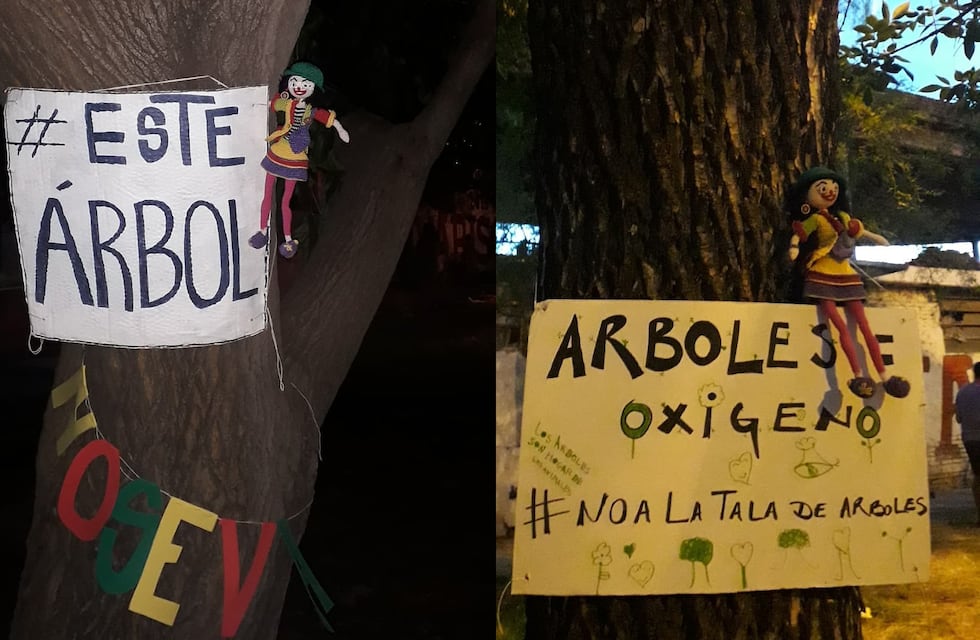 # ESTE
ÁRBOL
NO SE V
ARBOLES =
OXIGENO
LOS ARBOLES
SON HOGAR DE
LOS ANIMALES
# NO A LA TALA DE ARBOLES